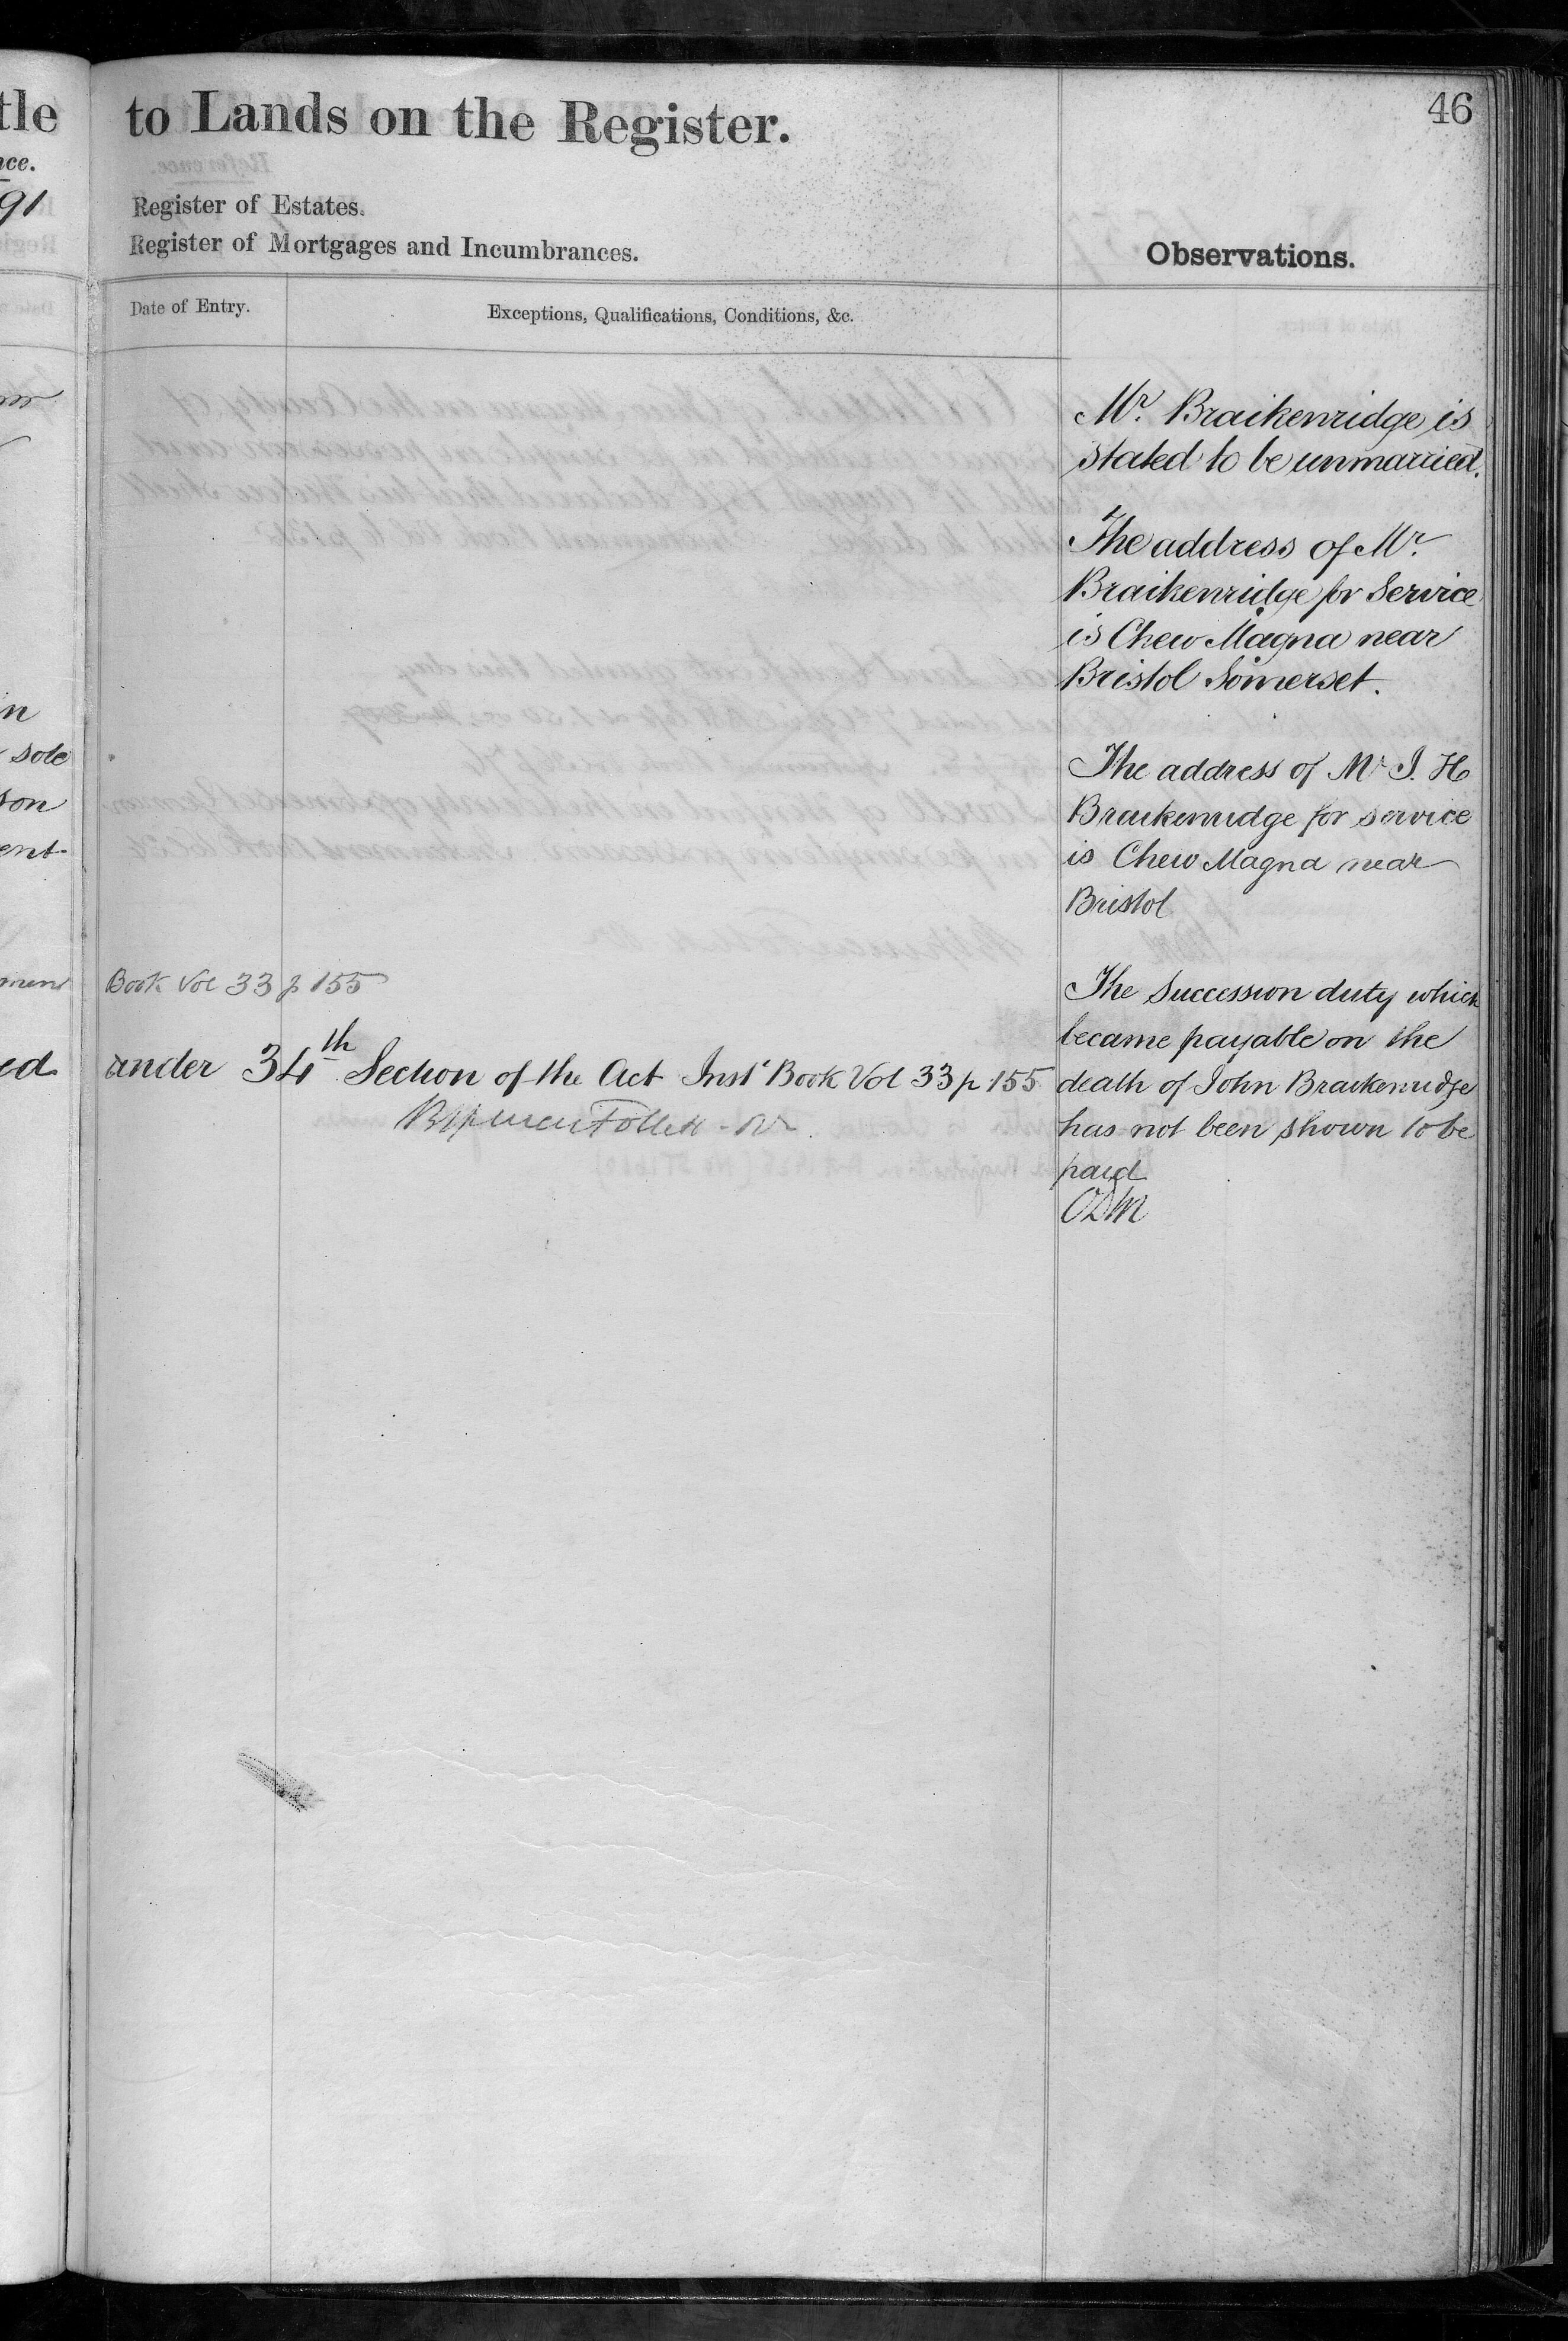 tle
nce.
91
in
sole
son
ent
ment
ed
to Lands on the Register.
46
Register of Estates.
Register of Mortgages and Incumbrances.
Observations.
Date of Entry.
Exceptions, Qualifications, Conditions, &c.
Book Vol 33 p 155
under 34th Section of the Act Inst Book Vol 33 p 155
Mr. Braikenridge is
stated to be unmarried.
The address of Mr.
Braikenridge for Service
is Chew Magna near
Bristol Somerset.
The address of Mr J. H
Braikenridge for service
is Chew Magna near
Bristol
The Succession duty which
became payable on the
death of John Braikenridge
has not been shown to be
paid